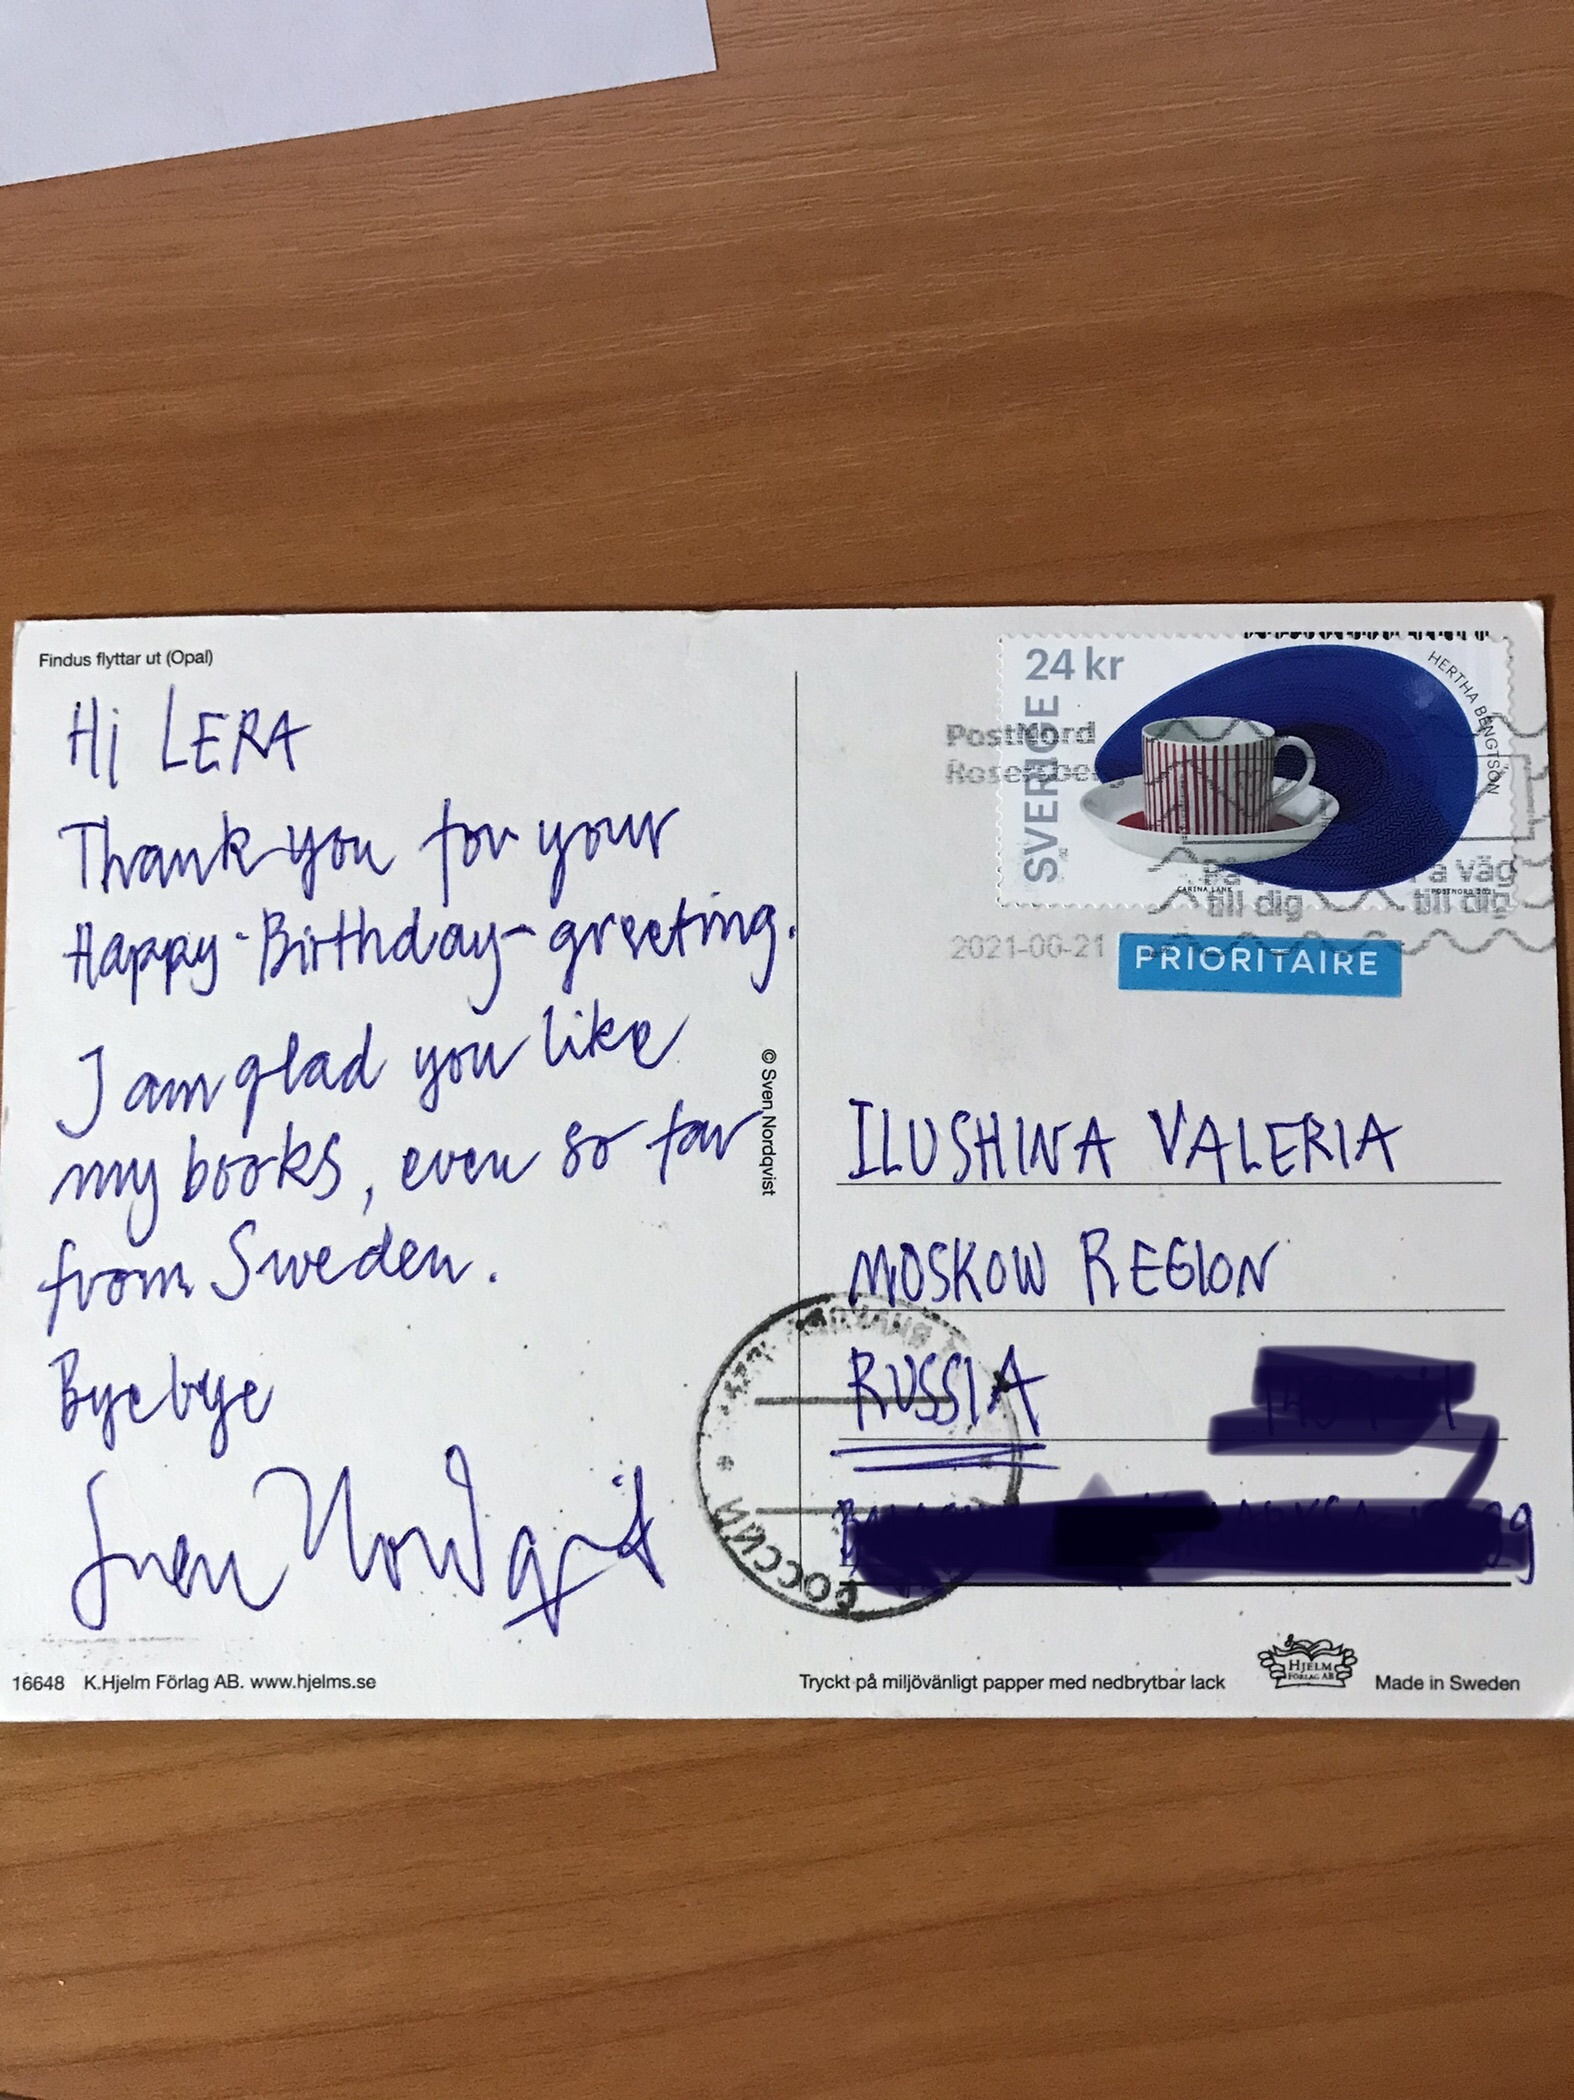 Findus flyttar ut (Opal)
Hi LERA
Thank you for your
Happy-Birthday-greeting.
I am glad you like
my books, even so far
from Sweden.
Byebye
Sven Nordqvist
© Sven Nordqvist
24 kr
SVERIGE
HERTHA BENGTSON
CARINA LÄNK
POSTNORD 2021
PostNord
till dig
a väg
till dig
PRIORITAIRE
ILUSHINA VALERIA
MOSKOW REGION
RUSSIA
РОССИИ
16648 K.Hjelm Förlag AB. www.hjelms.se
Tryckt på miljövänligt papper med nedbrytbar lack
HJELM
FÖRLAG AB
Made in Sweden